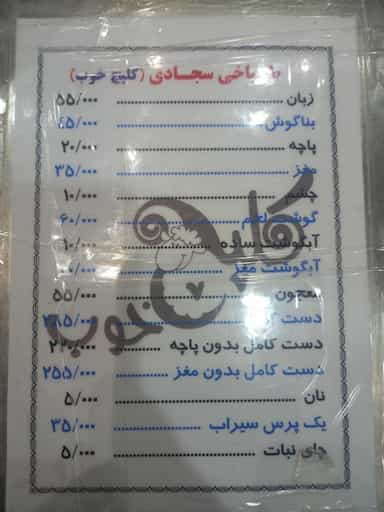 طباخی سجادی (کلپچ خوب)
زبان ........ ۵۵/۰۰۰
بناگوش ........ ۴۵/۰۰۰
پاچه ........ ۲۰/۰۰۰
مغز ........ ۳۵/۰۰۰
چشم ........ ۱۰/۰۰۰
گوشت لخم ........ ۶۰/۰۰۰
آبگوشت ساده ........ ۱۰/۰۰۰
آبگوشت مغز ........
معجون ........ ۵۵/۰۰۰
دست ........ ۲۸۵/۰۰۰
دست کامل بدون پاچه ........
دست کامل بدون مغز ........ ۲۵۵/۰۰۰
نان ........ ۵/۰۰۰
یک پرس سیراب ........ ۳۵/۰۰۰
چای نبات ........ ۵/۰۰۰